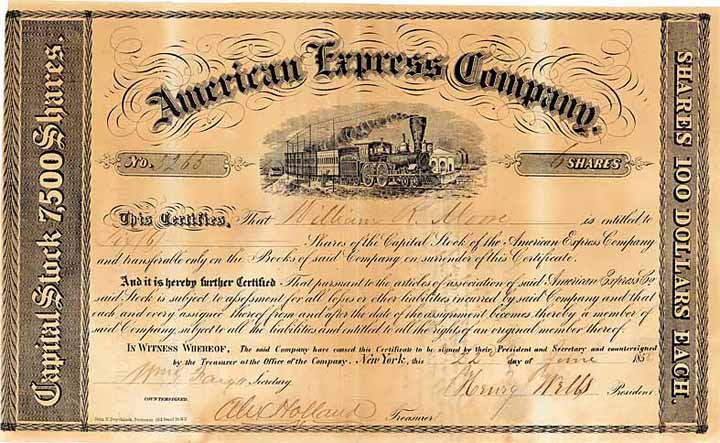 American Express Company.
Capital Stock 7,500 Shares.
SHARES 100 DOLLARS EACH.
No. 3263
6 SHARES
This Certifies, That William R. Moore is entitled to
Six (6) Shares of the Capital Stock of the American Express Company
and transferable only on the Books of said Company on surrender of this Certificate.
And it is hereby further Certified That pursuant to the articles of association of said American Express Co
said Stock is subject to assessment for all loss or other liabilities incurred by said Company and that
each and every assignee thereof from and after the date of the assignment becomes thereby a member of
said Company, subject to all the liabilities and entitled to all the rights of an original member thereof.
IN WITNESS WHEREOF, The said Company have caused this Certificate to be signed by their President and Secretary and countersigned
by the Treasurer at the Office of the Company. New York, this day of June 185
Wm G Fargo Secretary. Henry Wells President.
Alex Holland Treasurer.